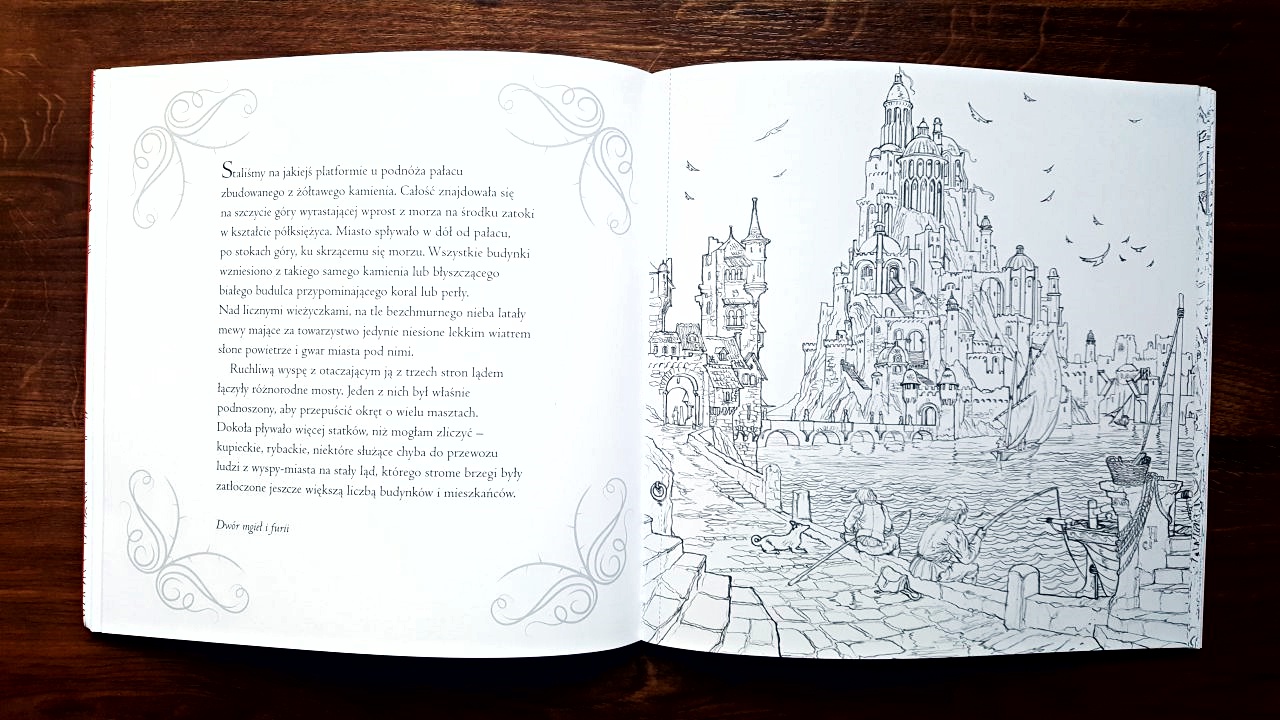 Staliśmy na jakiejś platformie u podnóża pałacu
zbudowanego z żółtawego kamienia. Całość znajdowała się
na szczycie góry wyrastającej wprost z morza na środku zatoki
w kształcie półksiężyca. Miasto spływało w dół od pałacu,
po stokach góry, ku skrzącemu się morzu. Wszystkie budynki
wzniesiono z takiego samego kamienia lub błyszczącego
białego budulca przypominającego koral lub perły.
Nad licznymi wieżyczkami, na tle bezchmurnego nieba latały
mewy mające za towarzystwo jedynie niesione lekkim wiatrem
słone powietrze i gwar miasta pod nimi.
Ruchliwą wyspę z otaczającym ją z trzech stron lądem
łączyły różnorodne mosty. Jeden z nich był właśnie
podnoszony, aby przepuścić okręt o wielu masztach.
Dokoła pływało więcej statków, niż mogłam zliczyć –
kupieckie, rybackie, niektóre służące chyba do przewozu
ludzi z wyspy-miasta na stały ląd, którego strome brzegi były
zatłoczone jeszcze większą liczbą budynków i mieszkańców.
Dwór mgieł i furii